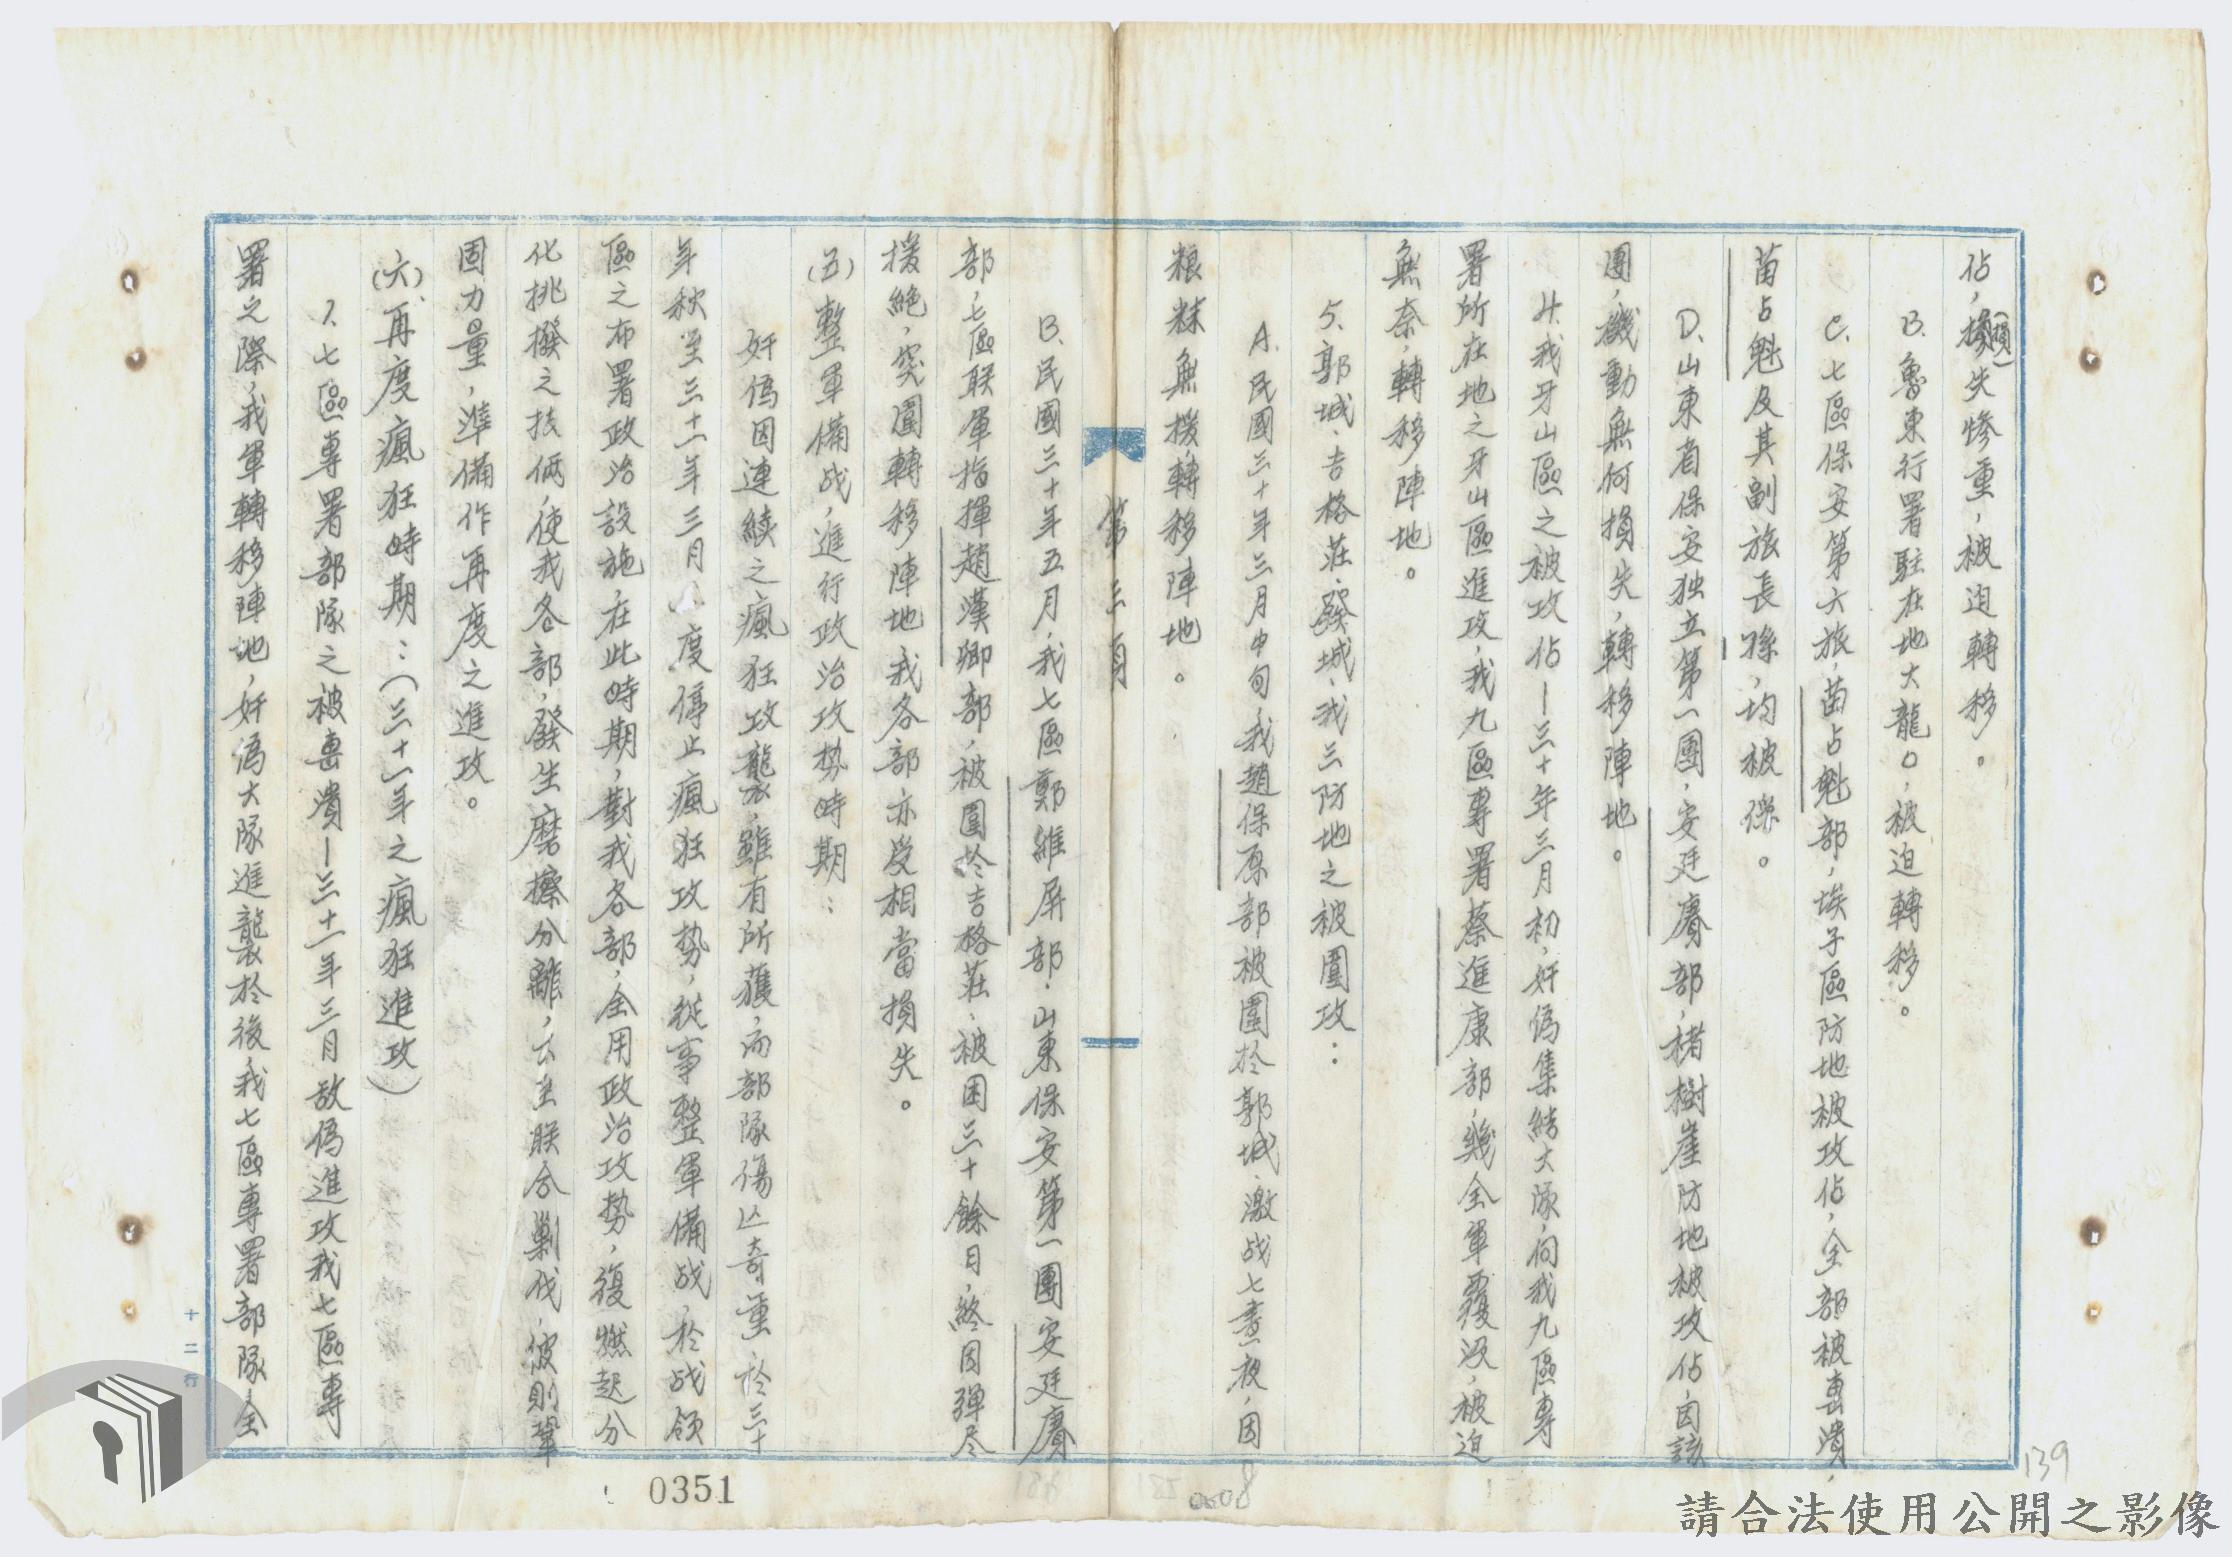 佔，損（損）失慘重，被迫轉移。
B.魯東行署駐在地大龍口，被迫轉移。
C.七區保安第六旅，苗占魁部，埃子區防地被攻佔，全部被擊潰，
苗占魁及其副旅長孫，均被俘。
D.山東省保安独立第一團，安廷賡部，楮樹崖防地被攻佔，因該
團，機動無何損失，轉移陣地。
4.我牙山區之被攻佔—三十年三月初，奸偽集結大隊，向我九區專
署所在地之牙山區進攻，我九區專署蔡進康部，幾全軍覆沒，被迫
無奈，轉移陣地。
5.郭城、吉格莊、發城、我三防地之被圍攻：
A.民國三十年三月中旬，我趙保原部被圍於郭城，激战七晝夜，因
粮秣無援，轉移陣地。
第三頁
B.民國三十年五月，我七區鄭維屏部，山東保安第一團安廷賡
部，七區联軍指揮趙漢卿部，被圍於吉格莊，被困三十餘日，終因彈尽
援絕，突圍轉移陣地，我各部亦受相當損失。
（五）整軍備战，進行政治攻势時期：
奸偽因連續之瘋狂攻襲，雖有所獲，而部隊傷亾奇重，於三十
年秋至三十一年三月，度停止瘋狂攻势，從事整軍備战，於战領
區之布署政治設施，在此時期，對我各部，全用政治攻势，復燃起分
化挑撥之技倆，使我各部，發生磨擦分離，云至联合剿伐，彼則鞏
固力量，準備作再度之進攻。
（六）、再度瘋狂時期：（三十一年之瘋狂進攻）
1.七區專署部隊之被擊潰—三十一年三月敌偽進攻我七區專
署之際，我軍轉移陣地，奸偽大隊進襲於後，我七區專署部隊全
十二行
0351
0608
139
請合法使用公開之影像